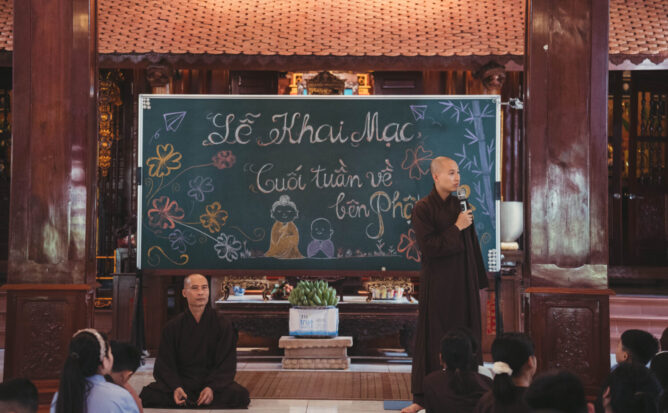 Lễ Khai Mạc
Cuối tuần về
bên Phật